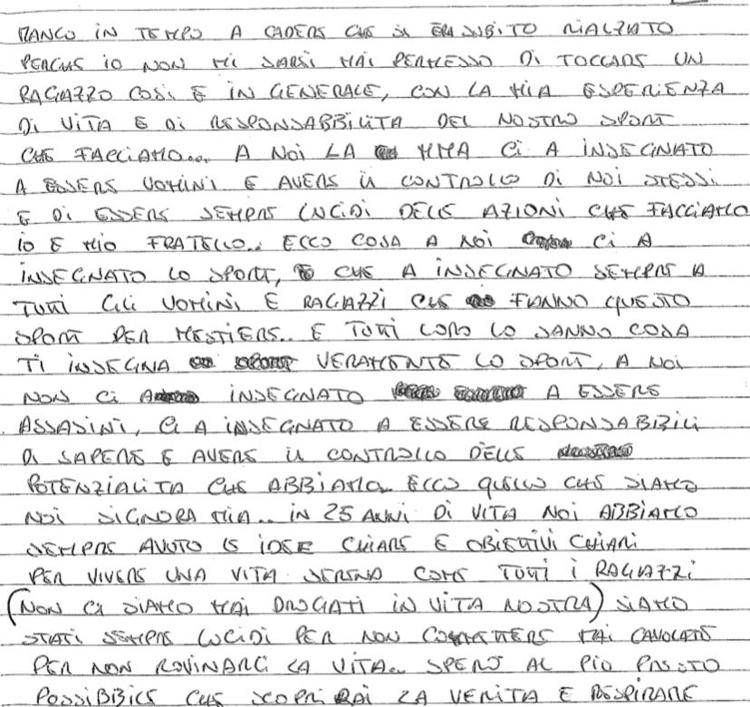 MANCO IN TEMPO A CADERE CHE SI ERA SUBITO RIALZATO
PERCHE IO NON MI SAREI MAI PERMESSO DI TOCCARE UN
RAGAZZO COSI E IN GENERALE, CON LA MIA ESPERIENZA
DI VITA E DI RESPONSABBILITA DEL NOSTRO SPORT
CHE FACCIAMO... A NOI LA MMA CI A INSEGNATO
A ESSERE UOMINI E AVERE IL CONTROLLO DI NOI STESSI
E DI ESSERE SEMPRE LUCIDI DELLE AZIONI CHE FACCIAMO
IO E MIO FRATELLO.. ECCO COSA A NOI CI A
INSEGNATO LO SPORT, E CHE A INSEGNATO SEMPRE A
TUTTI GLI UOMINI E RAGAZZI CHE FANNO QUESTO
SPORT PER MESTIERE.. E TUTTI LORO LO SANNO COSA
TI INSEGNA VERAMENTE LO SPORT, A NOI
NON CI INSEGNATO A ESSERE
ASSASINI, CI A INSEGNATO A ESSERE RESPONSABILI
DI SAPERE E AVERE IL CONTROLLO DELLE
POTENZIALITA CHE ABBIAMO.. ECCO QUELLO CHE SIAMO
NOI SIGNORA MIA.. IN 25 ANNI DI VITA NOI ABBIAMO
SEMPRE AVUTO LE IDEE CHIARE E OBIETTIVI CHIARI
PER VIVERE UNA VITA SERENA COME TUTTI I RAGAZZI
(NON CI SIAMO MAI DROGATI IN VITA NOSTRA) SIAMO
STATI SEMPRE LUCIDI PER NON COMMETTERE MAI CAVOLATE
PER NON ROVINARCI LA VITA.. SPERO AL PIÙ PRESTO
POSSIBILE CHE SCOPRIRAI LA VERITA E RESPIRARE